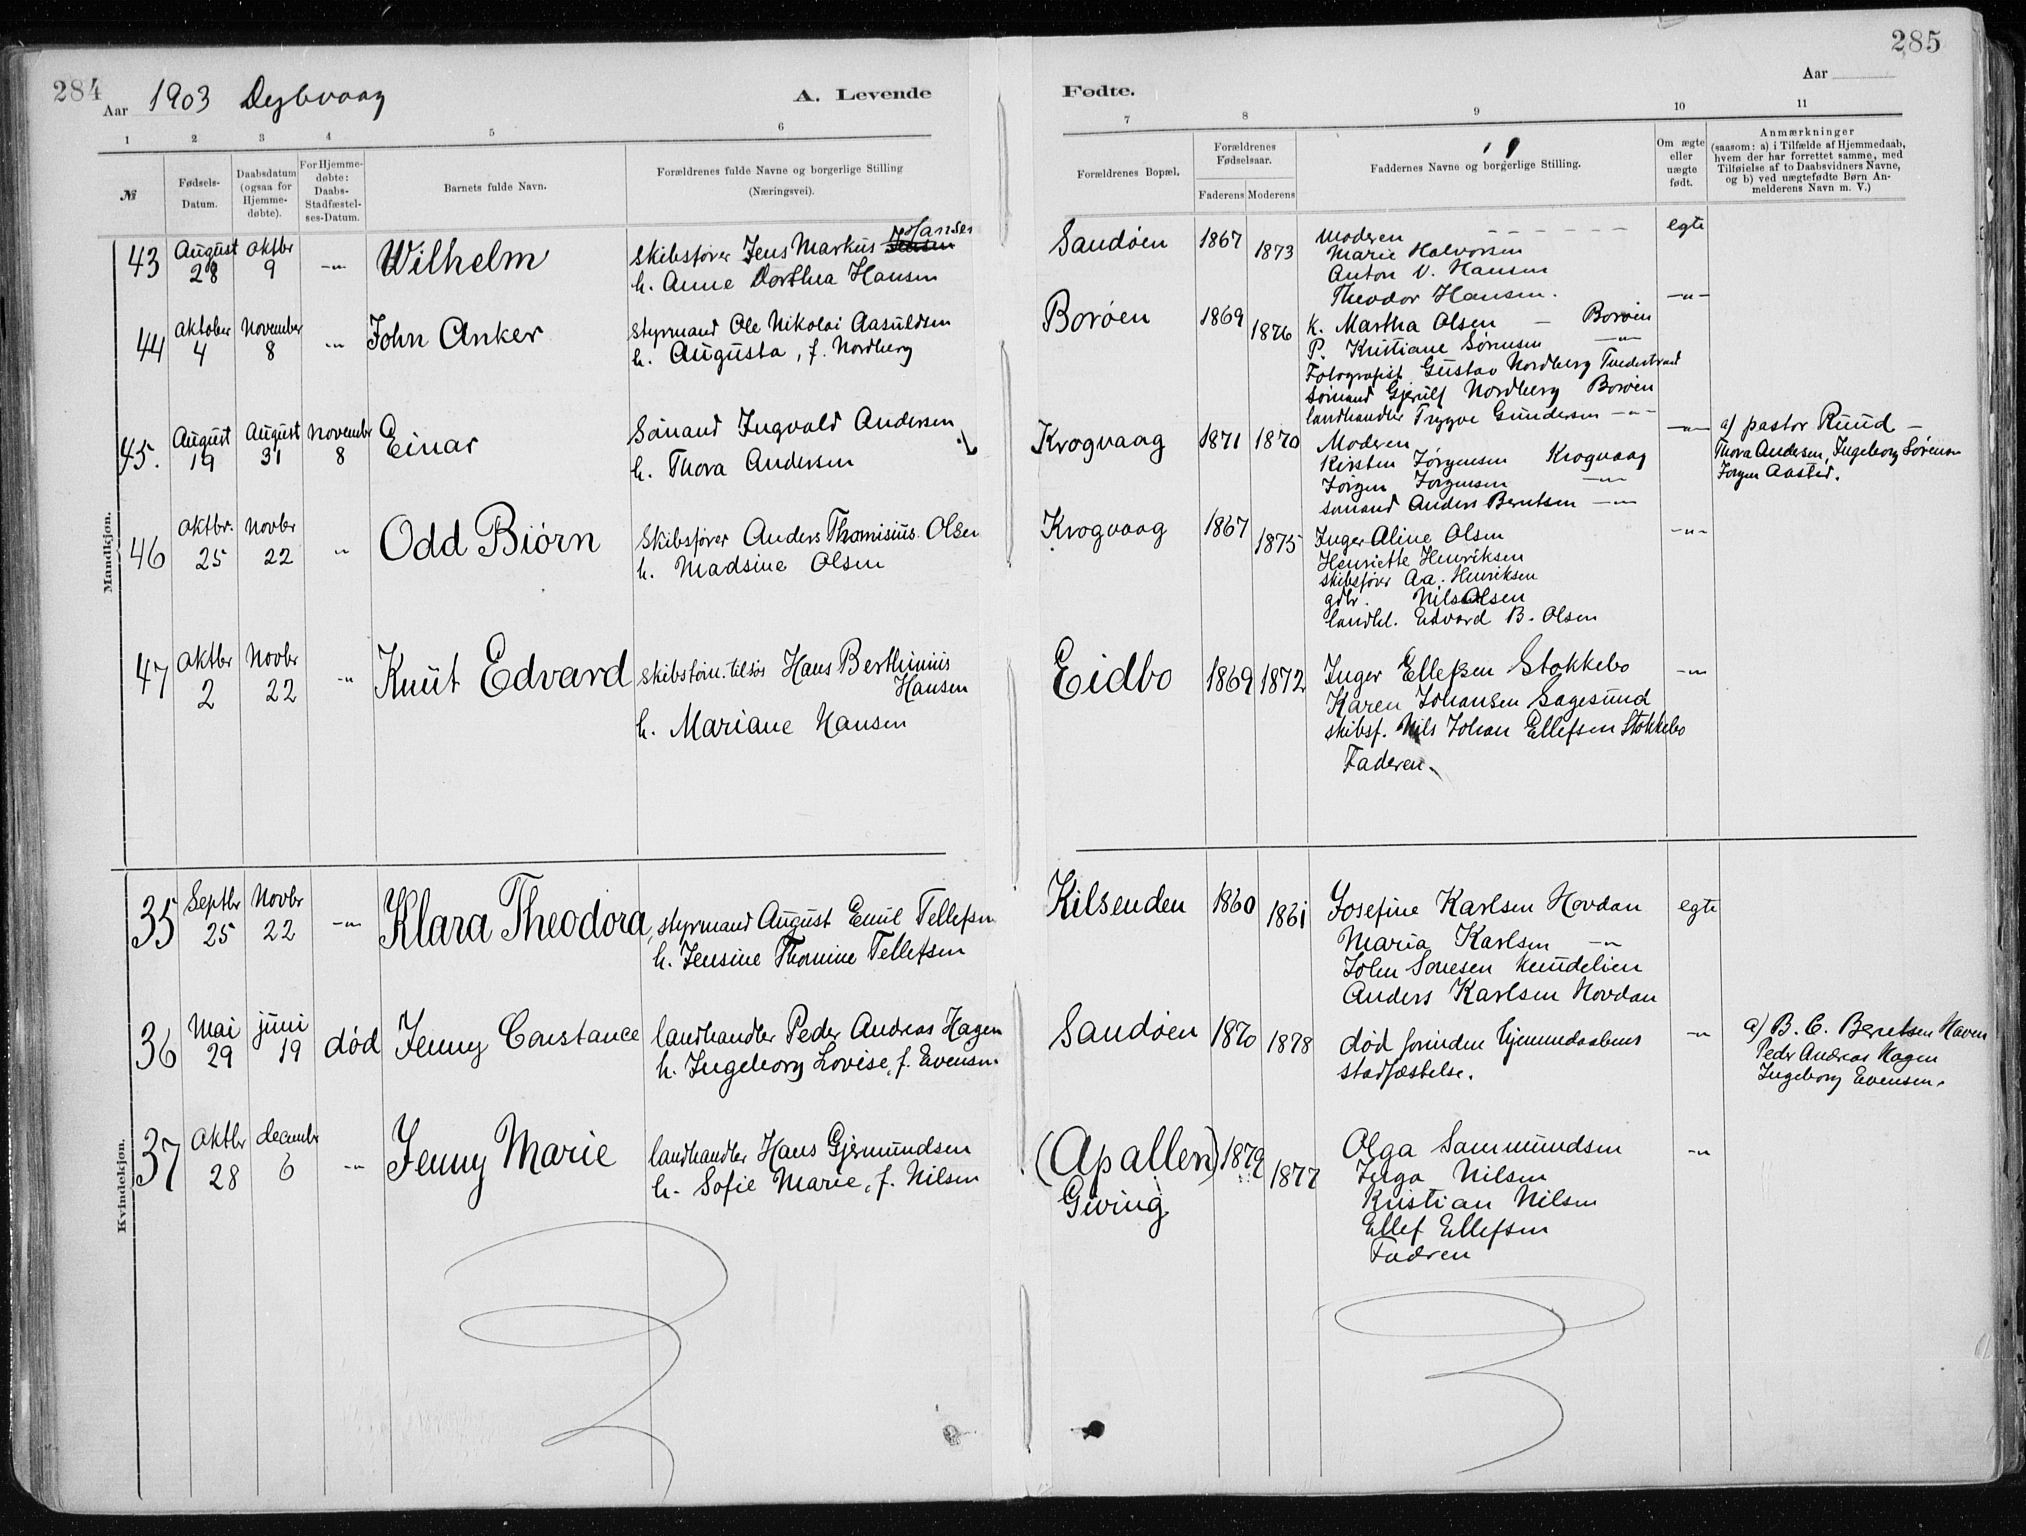 284
285
Aar 1903 Dybvaag
A. Levende
Fødte.
Aar
1
2
3
4
5
6
7
8
9
10
11
№
Fødsels-
Datum.
Daabsdatum
(ogsaa for
Hjemme-
døbte).
For Hjemme-
døbte:
Daabs-
Stadfæstel-
ses-Datum.
Barnets fulde Navn.
Forældrenes fulde Navne og borgerlige Stilling
(Næringsvei).
Forældrenes Bopæl.
Forældrenes
Fødselsaar.
Faderens
Moderens
Faddernes Navne og borgerlige Stilling.
Om ægte
eller
uægte
født.
Anmærkninger
(saasom: a) i Tilfælde af Hjemmedaab,
hvem der har forrettet samme, med
Tilføielse af to Daabsvidners Navne,
og b) ved uægtefødte Børn An-
melderens Navn m. V.)
Mandkjøn.
43
August
28
oktbr
9
-"-
Wilhelm
Skibsfører Jens Markus Jensen Hansen
h. Anne Dorthea Hansen
Sandøen
1867
1873
Moderen
Marie Halvorsen
Anton V. Hansen
Theodor Hansen.
egte
44
oktober
4
November
8
-"-
John Anker
Styrmand Ole Nikolai Aasuldsen
h. Augusta, f. Nordberg
Borøen
1869
1876
K. Martha Olsen - Borøen
P. Kristiane Sørensen -"-
Fotografist Gustav Nordberg Tvedestrand
Sømand Gjerulf Nordberg Borøen
landhandler Trygve Gundersen -"-
-"-
45.
August
19
August
31
November
8
Einar
Sømand Ingvald Andersen
h. Thora Andersen
Krogvaag
1871
1870
Moderen
Kirsten Jørgensen Krogvaag
Jørgen Jørgensen -"-
sømand Anders Berntsen -"-
-"-
a) pastor Ruud -
Thora Andersen, Ingeborg Sørensen
Jørgen Aasted.
46
oktbr.
25
Novbr
22
"
Odd Biørn
Skibsfører Anders Thomisius Olsen
h. Madsine Olsen
Krogvaag
1867
1875
Inger Aline Olsen
Henriette Henriksen
skibsfører Aa. Henriksen
gdbr. Nils Olsen
landhl. Edvard B. Olsen
-"-
47
oktbr
2
Novbr
22
-"
Knut Edvard
skibstøm. tilsøs Hans Berthinius
Hansen
h. Mariane Hansen
Eidbo
1869
1872
Inger Ellefsen Stokkebo
Karen Johansen Sagesund
skibsf. Nils Johan Ellefsen Stokkebo
Faderen.
-"-
Kvindekjøn.
35
Septbr
25
Novbr
22
-"-
Klara Theodora
styrmand August Emil Tellefsen
h. Jensine Thomine Tellefsen
Kilsenden
1860
1861
Josefine Karlsen Hovdan
Maria Karlsen -"-
John Sonesen
Anders Karlsen Hovdan
egte
36
Mai
29
juni
19
død
Jenny Constance
landhandler Peder Andreas Hagen
h. Ingeborg Lovise, f. Evensen.
Sandøen
1870
1878
død forinden hjemmedaabens
stadfæstelse.
-"-
a) B. C. Berntsen Haven
Peder Andreas Hagen
Ingeborg Evensen.
37
oktbr
28
decembr
6
-"-
Jenny Marie
landhandler Hans Gjermundsen
h. Sofie Marie, f. Nilsen
(Apallen)
Giving
1879
1877
Olga Sammundsen
Inga Nilsen
Kristian Nilsen
Ellef Ellefsen
Fadren
-"-